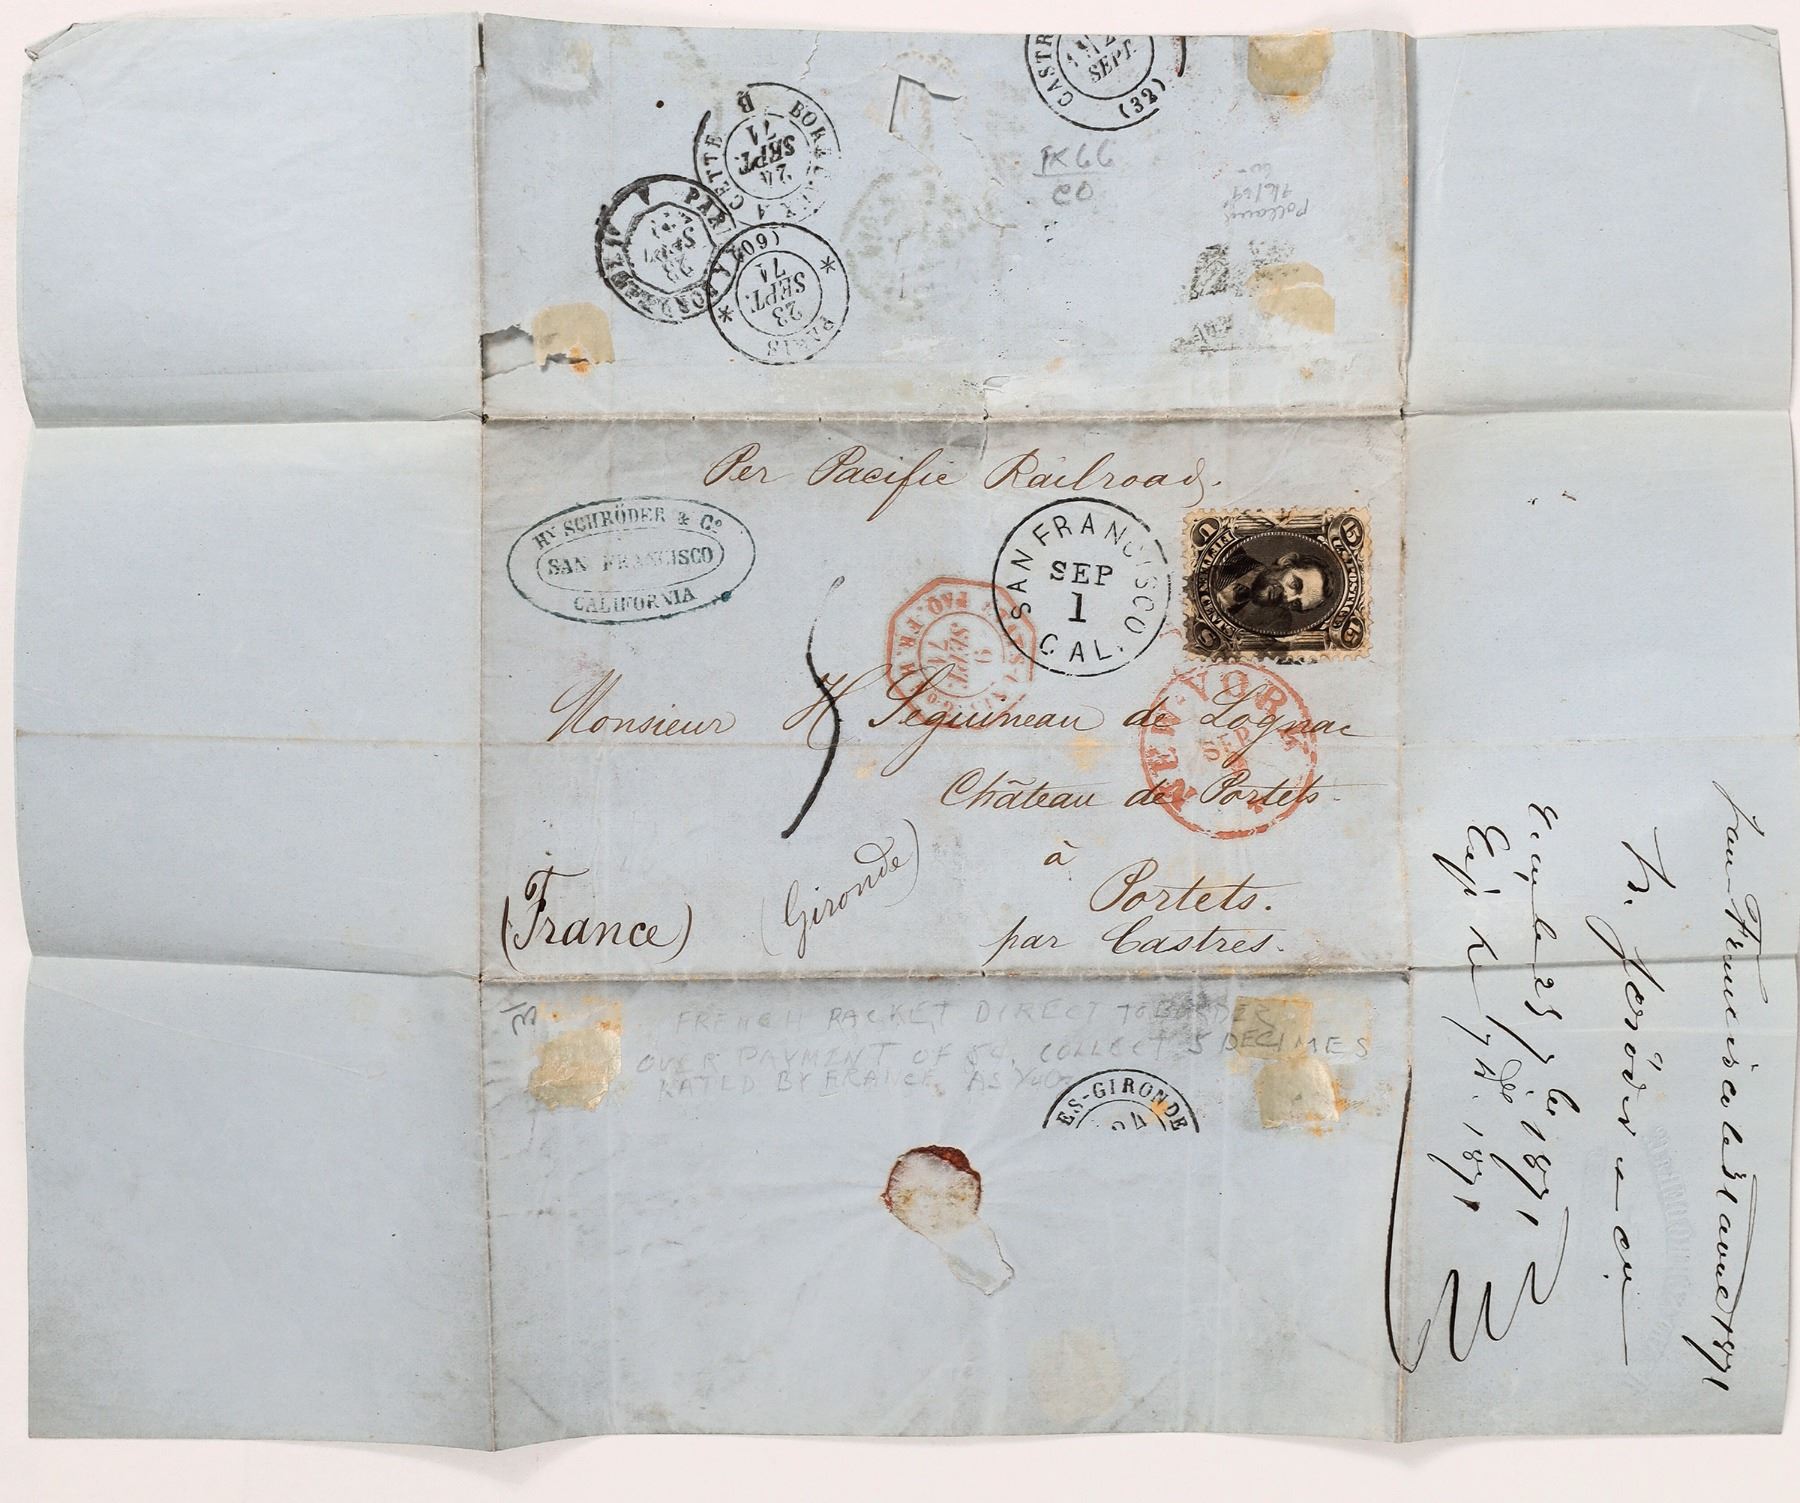 CASTR
SEPT.
(32)
BORD
CETTE
B
24
SEPT.
71
A PARI
23
SEPT
PARIS
(60)
23
SEPT.
71
1K66
CO
Per Pacific Railroad.
HY SCHRÖDER & Co
SAN FRANCISCO
CALIFORNIA
SAN FRANCISCO
SEP
1
CAL.
U.S. POSTAGE
15
15
PAQ. FR. H No
9
SEPT.
71
NEW YORK
SEP
5
Monsieur H Seguineau de Lognac
Château de Portets.
à
Portets.
par Castres.
(Gironde)
(France)
FRENCH PACKET DIRECT TO
OVER PAYMENT OF 5c. COLLECT 5 DECIMES
RATED BY FRANCE AS
ES-GIRONDE
24
San Francisco le 31 aout 1871
H. Schröder & Cie
Reçu le 25 7bre 1871
Rep. le 7 Xbre 1871